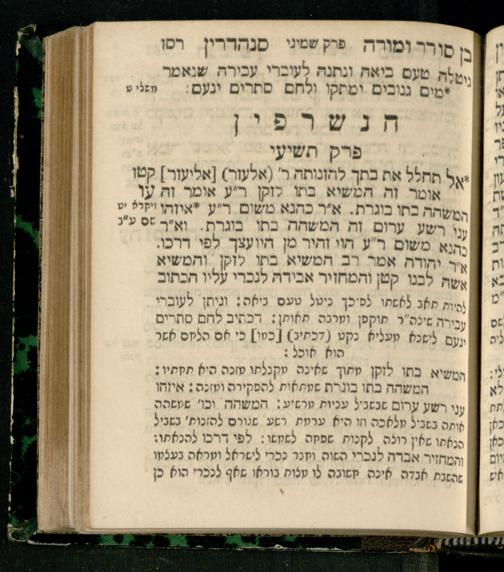 בן סורר ומורה פרק שמיני סנהדרין רסו
ניטלה טעם ביאה ונתנה לעוברי עבירה שנאמר
*מים גנובים ימתקו ולחם סתרים ינעם: משלי ט
הנשרפין
פרק תשיעי
*אל תחלל את בתך להזנותה ר' (אלעזר) [אליעזר] קטז
אומר זה המשיא בתו לזקן ר"ע אומר זה עו
המשהה בתו בוגרת. א"ר כהנא משום ר"ע *איזהו ויקלא יט
עני רשע ערום זה המשהה בתו בוגרת. וא"ר שם ע"ג
כהנא משום ר"ע הוי זהיר מן היועצך לפי דרכו.
א"ר יהודה אמר רב המשיא בתו לזקן והמשיא
אשה לבנו קטן והמחזיר אבידה לנכרי עליו הכתוב
להיות תאב לאשתו לפיכך ניטל טעם ביאה: וניתן לעוברי
עבירה שילה"ר תוקפן ומרבה תאותן: דכתיב לחם סתרים
ינעם לישנא מעליא נקט (דכתיב) [כמו] כי אם הלחם אשר
הוא אוכל:
המשיא בתו לזקן מתוך שאינה מקבלתו מזנה היא תחתיו:
המשהה בתו בוגרת שמתאות להפקירה ומזנה: איזהו
עני רשע ערום שבשביל עניות מרשיע: המשהה וכו' שמשהה
אותה בשביל מלאכה זו היא ערמת רשע שגורם להזנות' בשביל
הנאתו שאין רוצה לקנות שפחה לשמשו: לפי דרכו להנאתו:
והמחזיר אבדה לנכרי השוה וחבר נכרי לישראל ומראה בעלמו
שהשבת אבדה אינה חשובה לו מצות בוראו שאף לנכרי הוא כן